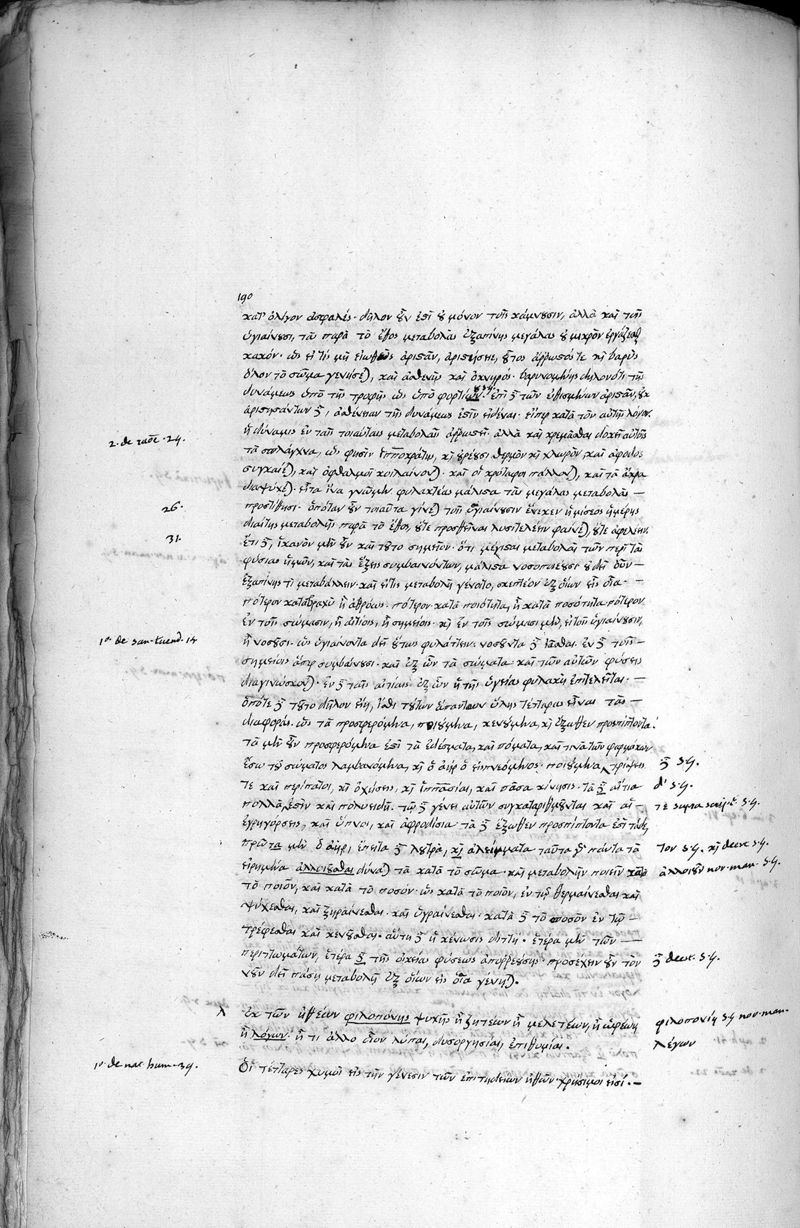 190
κατ' ὀλίγον ἀσφαλές. δῆλον οὖν ἐστὶ οὐ μόνον τοῖς κάμνουσιν, ἀλλὰ καὶ τοῖς
ὑγιαίνουσι, τὰς παρὰ τὸ ἔθος μεταβολὰς ἐξαπίνης μεγάλας οὐ μικρὸν ἐργάζεσθαι
κακόν. ὡς εἴ τις μὴ εἰωθὼς ἀριστᾶν, ἀριστήσειε, οὗτος ἄρρωστός τε καὶ βαρὺς
ὅλον τὸ σῶμα γενήσεται, καὶ ἀσθενὴς καὶ ὀκνηρός. βαρυνομένης δηλονότι τῆς
δυνάμεως ὑπὸ τῆς τροφῆς ὡς ὑπὸ φορτίου. ἐπὶ δὲ τῶν εἰθισμένων ἀριστᾶν, οὐκ
ἀριστησάντων δὲ, ἀσθένειαν τῆς δυνάμεως ἐστὶν εἰδέναι. εἴπερ κατὰ τὸν αὐτῆς λόγον
ἡ δύναμις ἐν ταῖς τοιαύταις μεταβολαῖς ἀρρωστεῖ. ἀλλὰ καὶ κρέμασθαι δοκεῖ αὐτοῖς
τὰ σπλάγχνα, ὡς φησὶν Ἱπποκράτης, καὶ οὐρέουσι θερμὸν καὶ χλωρὸν καὶ ἄφοδος
συγκαίεται, καὶ ὀφθαλμοὶ κοιλαίνονται. καὶ οἱ κρόταφοι πάλλονται, καὶ τὰ ἄκρα
διαψύχεται. εἶτα ἵνα γνῶμεν φυλακτέας μάλιστα τὰς μεγάλας μεταβολὰς —
προστίθησι. ὁπόταν οὖν τοιαῦτα γίνεται τοῖς ὑγιαίνουσιν ἕνεκεν ἡμίσεος ἡμέρης
διαίτης μεταβολῆς παρὰ τὸ ἔθος, οὔτε προσθεῖναι λυσιτελέειν φαίνεται, οὔτε ἀφελέειν.
ἔτι δὲ, ἱκανὸν μὲν οὖν καὶ τοῦτο σημεῖον. ὅτι μέγισται μεταβολαὶ τῶν περὶ τὰς
φύσιας ἡμῶν, καὶ τὰς ἕξεις συμβαινόντων, μάλιστα νοσοποιέουσι οὐ δεῖ οὖν —
ἐξαπίνης τι μεταβάλλειν. καὶ εἴ τις μεταβολὴ γένοιτο, σκεπτέον ἐξ οἵων εἰς οἷα. —
πότερον καταβραχὺ ἢ ἀθρόως. πότερον κατὰ ποιότητα, ἢ κατὰ ποσότητα πότερον
ἐν τοῖς σώμασιν, ἢ αἰτίοις, ἢ σημείοις. καὶ ἐν τοῖς σώμασι μὲν, εἴτουν ὑγιαίνουσιν,
ἢ νοσοῦσι. ὡς ὑγιαίνοντα δεῖ οὕτως φυλάττειν. νοσοῦντα δὲ ἰᾶσθαι. ἐν δὲ τοῖς —
σημείοις ἅπερ συμβαίνουσι. καὶ ἐξ ὧν τὰ σώματα καὶ τῶν αὐτῶν φύσεις
διαγινώσκονται. ἐν δὲ ταῖς αἰτίαις ἐξ ὧν ἡ τῆς ὑγείας φυλακὴ ἐπιτελεῖται. —
ὁπότε δὲ τοῦτο δῆλον εἴη, ἴσθι τούτων ἁπάντων ὕλης τέτταρας εἶναι τὰς —
διαφοράς. ὡς τὰ προσφερόμενα, ποιούμενα, κενούμενα, καὶ ἔξωθεν προσπίπτοντα.
τὰ μὲν οὖν προσφερόμενα ἐστὶ τὰ ἐδέσματα, καὶ πόματα, καὶ τινα τῶν φαρμάκων
ἔσω τοῦ σώματος λαμβανόμενα, καὶ ὁ ἀὴρ ὁ εἰσπνεόμενος. ποιούμενα τρίψεις
τε καὶ περίπατοι, καὶ ὀχήσεις, καὶ ἱππασίαι, καὶ πᾶσα κίνησις. τὰ δὲ αἴτια
πολλὰ ἐστὶν καὶ πολυειδῆ. τῷ δὲ γένει αὐτῶν συγκαταριθμοῦνται καὶ αἱ —
ἐγρηγόρσεις, καὶ ὕπνοι, καὶ ἀφροδίσια τὰ δὲ ἔξωθεν προσπίπτοντα ἐστὶ τάδε,
πρῶτα μὲν ὁ ἀὴρ, ἔπειτα δὲ λουτρὰ, καὶ ἀλείμματα ταῦτα γὰρ πάντα τὰ
εἰρημένα ἀλλοιοῦσθαι δύναται τὰ κατὰ τὸ σῶμα. καὶ μεταβολὴν ποιεῖν κατὰ
τὸ ποιὸν, καὶ κατὰ τὸ ποσόν. ὡς κατὰ τὸ ποιὸν, ἐν τῷ θερμαίνεσθαι καὶ
ψύχεσθαι, καὶ ξηραίνεσθαι. καὶ ὑγραίνεσθαι. κατὰ δὲ τὸ ποσὸν ἐν τῷ —
τρέφεσθαι καὶ κενοῦσθαι. αὕτη δὲ ἡ κένωσις διττή. ἑτέρα μὲν τῶν —
περιττωμάτων, ἑτέρα δὲ τῆς οἰκείας φύσεως ἀπορρεούσης. προσέχειν οὖν τὸν
νοῦν δεῖ πάσῃ μεταβολῇ ἐξ οἵων εἰς οἷα γένηται.
λ ἐκ τῶν ἠθέων φιλοπόνης ψυχῆς ἢ ζητέων ἢ μελετέων, ἢ ὁρέων
ἢ λόγων. ἤ τι ἄλλο οἷον λύπαι, δυσοργησίαι, ἐπιθυμίαι.
Οἱ τέτταρες χυμοὶ εἰς τὴν γένεσιν τῶν ἐπιτηδείων ἠθῶν χρήσιμοί εἰσι. —
26.
31.
1º de san. tuend. 14
1º de nat. hum. 39.
δὲ 54.
δ' 54.
τὸν 54. καὶ deest 54.
ἀλλοιοῦν nor. man. 54.
δὲ deest. 54.
φιλοπονίη 54 nor. man.
λέγων